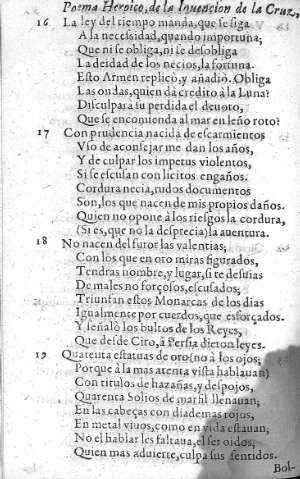 Poema Heroico, de la Inuencion de la Cruz,
16 La ley del tiempo manda, que se siga
A la necessidad, quando importuna;
Que ni se obliga, ni se desobliga
La deidad de los necios, la fortuna.
Esto Armen replicò, y añadiò. Obliga
Las ondas, quien dà credito à la Luna?
Disculpa su perdida el deuoto,
Que se encomienda al mar en leño roto?
17 Con prudencia nacida de escarmientos
Vso de aconsejar me dan los años,
Y de culpar los impetus violentos,
Si se escusan con licitos engaños.
Cordura necia, rudos documentos
Son, los que nacen de mis propios daños.
Quien no opone à los riesgos la cordura,
(Si es, que no la desprecia) la auentura.
18 No nacen del furor las valentias;
Con los que en oro miras figurados,
Tendras nombre, y lugar, si te desuias
De males no forçosos, escusados,
Triunfan estos Monarcas de los dias
Igualmente por cuerdos, que esforçados.
Y señalò los bultos de los Reyes,
Que desde Ciro, à Persia dieton leyes.
19 Quarenta estatuas de oro (no à los ojos;
Porque à la mas atenta vista hablauan)
Con titulos de hazañas, y despojos,
Quarenta Solios de marfil llenauan;
En las cabeças con diademas rojos,
En metal viuos, como en vida estauan;
No el hablar les faltaua, el ser oidos,
Quien mas aduierte, culpa sus sentidos.
Bol-